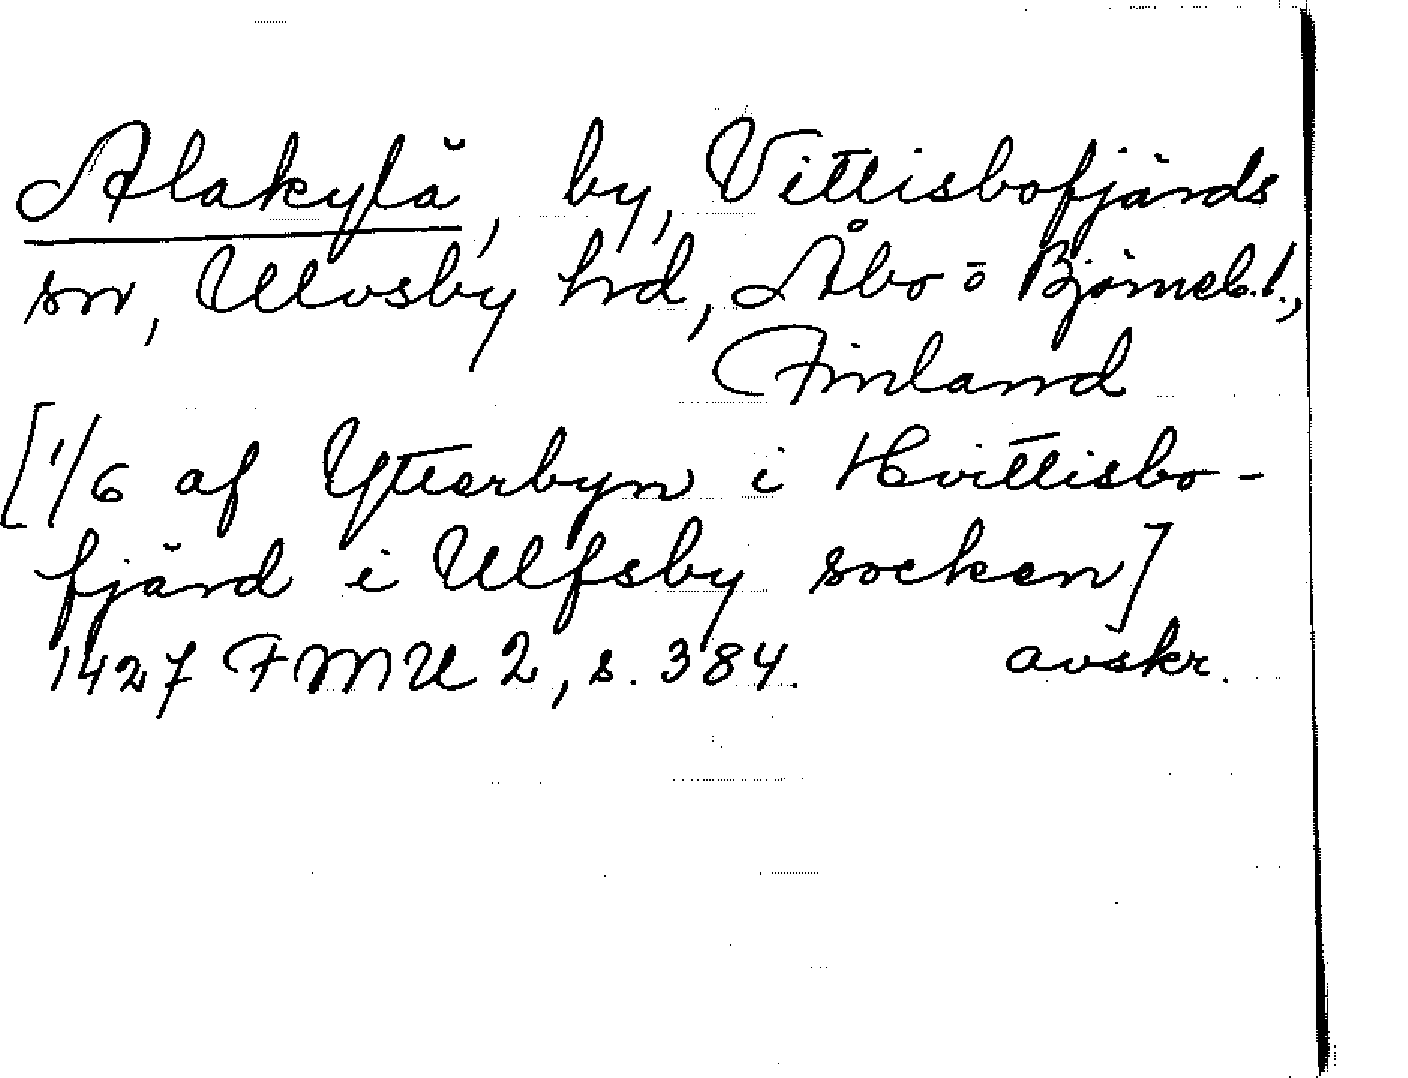 Alakylä, by, Vittisbofjärds
sn, Ulvsby hrd, Åbo o Björneb.l.,
Finland
[1/6 af Ytterbyn i Hvittisbo-
fjärd i Ulfsby socken]
1427 FMU 2, s. 384. avskr.